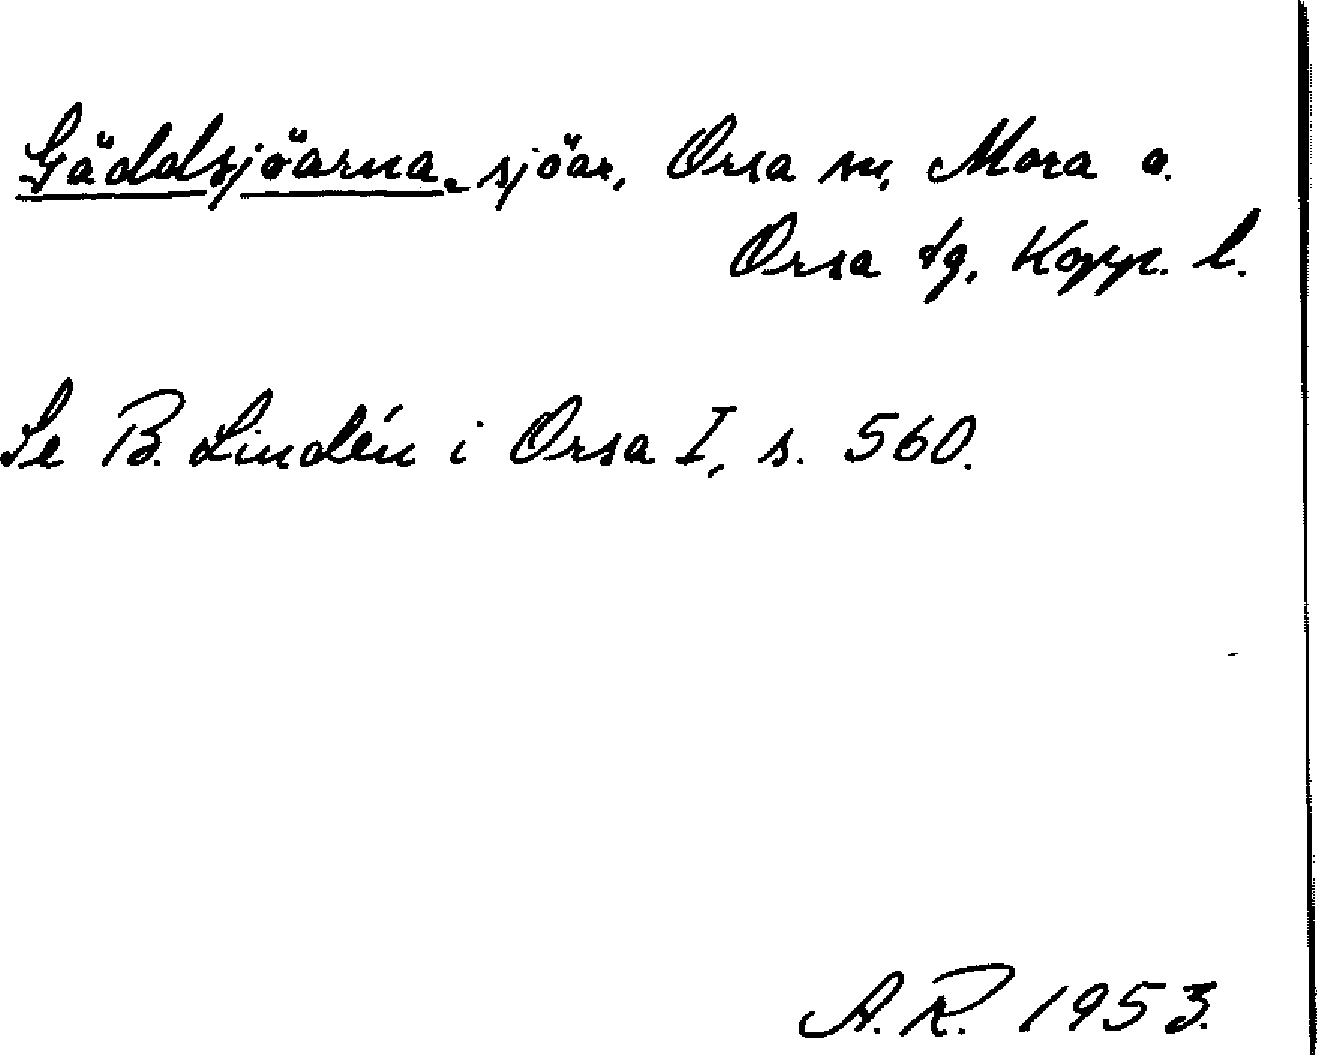 Gäddsjöarna, sjöar, Orsa sn, Mora o.
Orsa tg, Kopp. l.
Se B. Lindén i Orsa I, s. 560.
A.R. 1953.